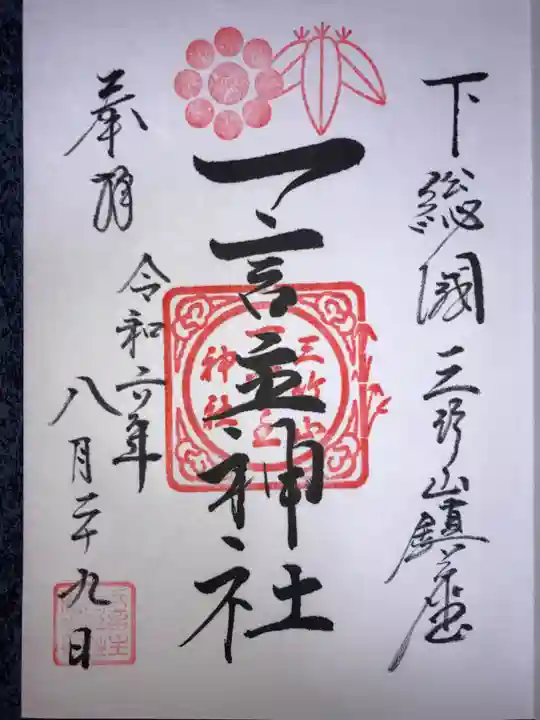 下総國三竹山鎮座
一言主神社
奉拝
令和六年
八月二十九日
三竹山
一言主
神社